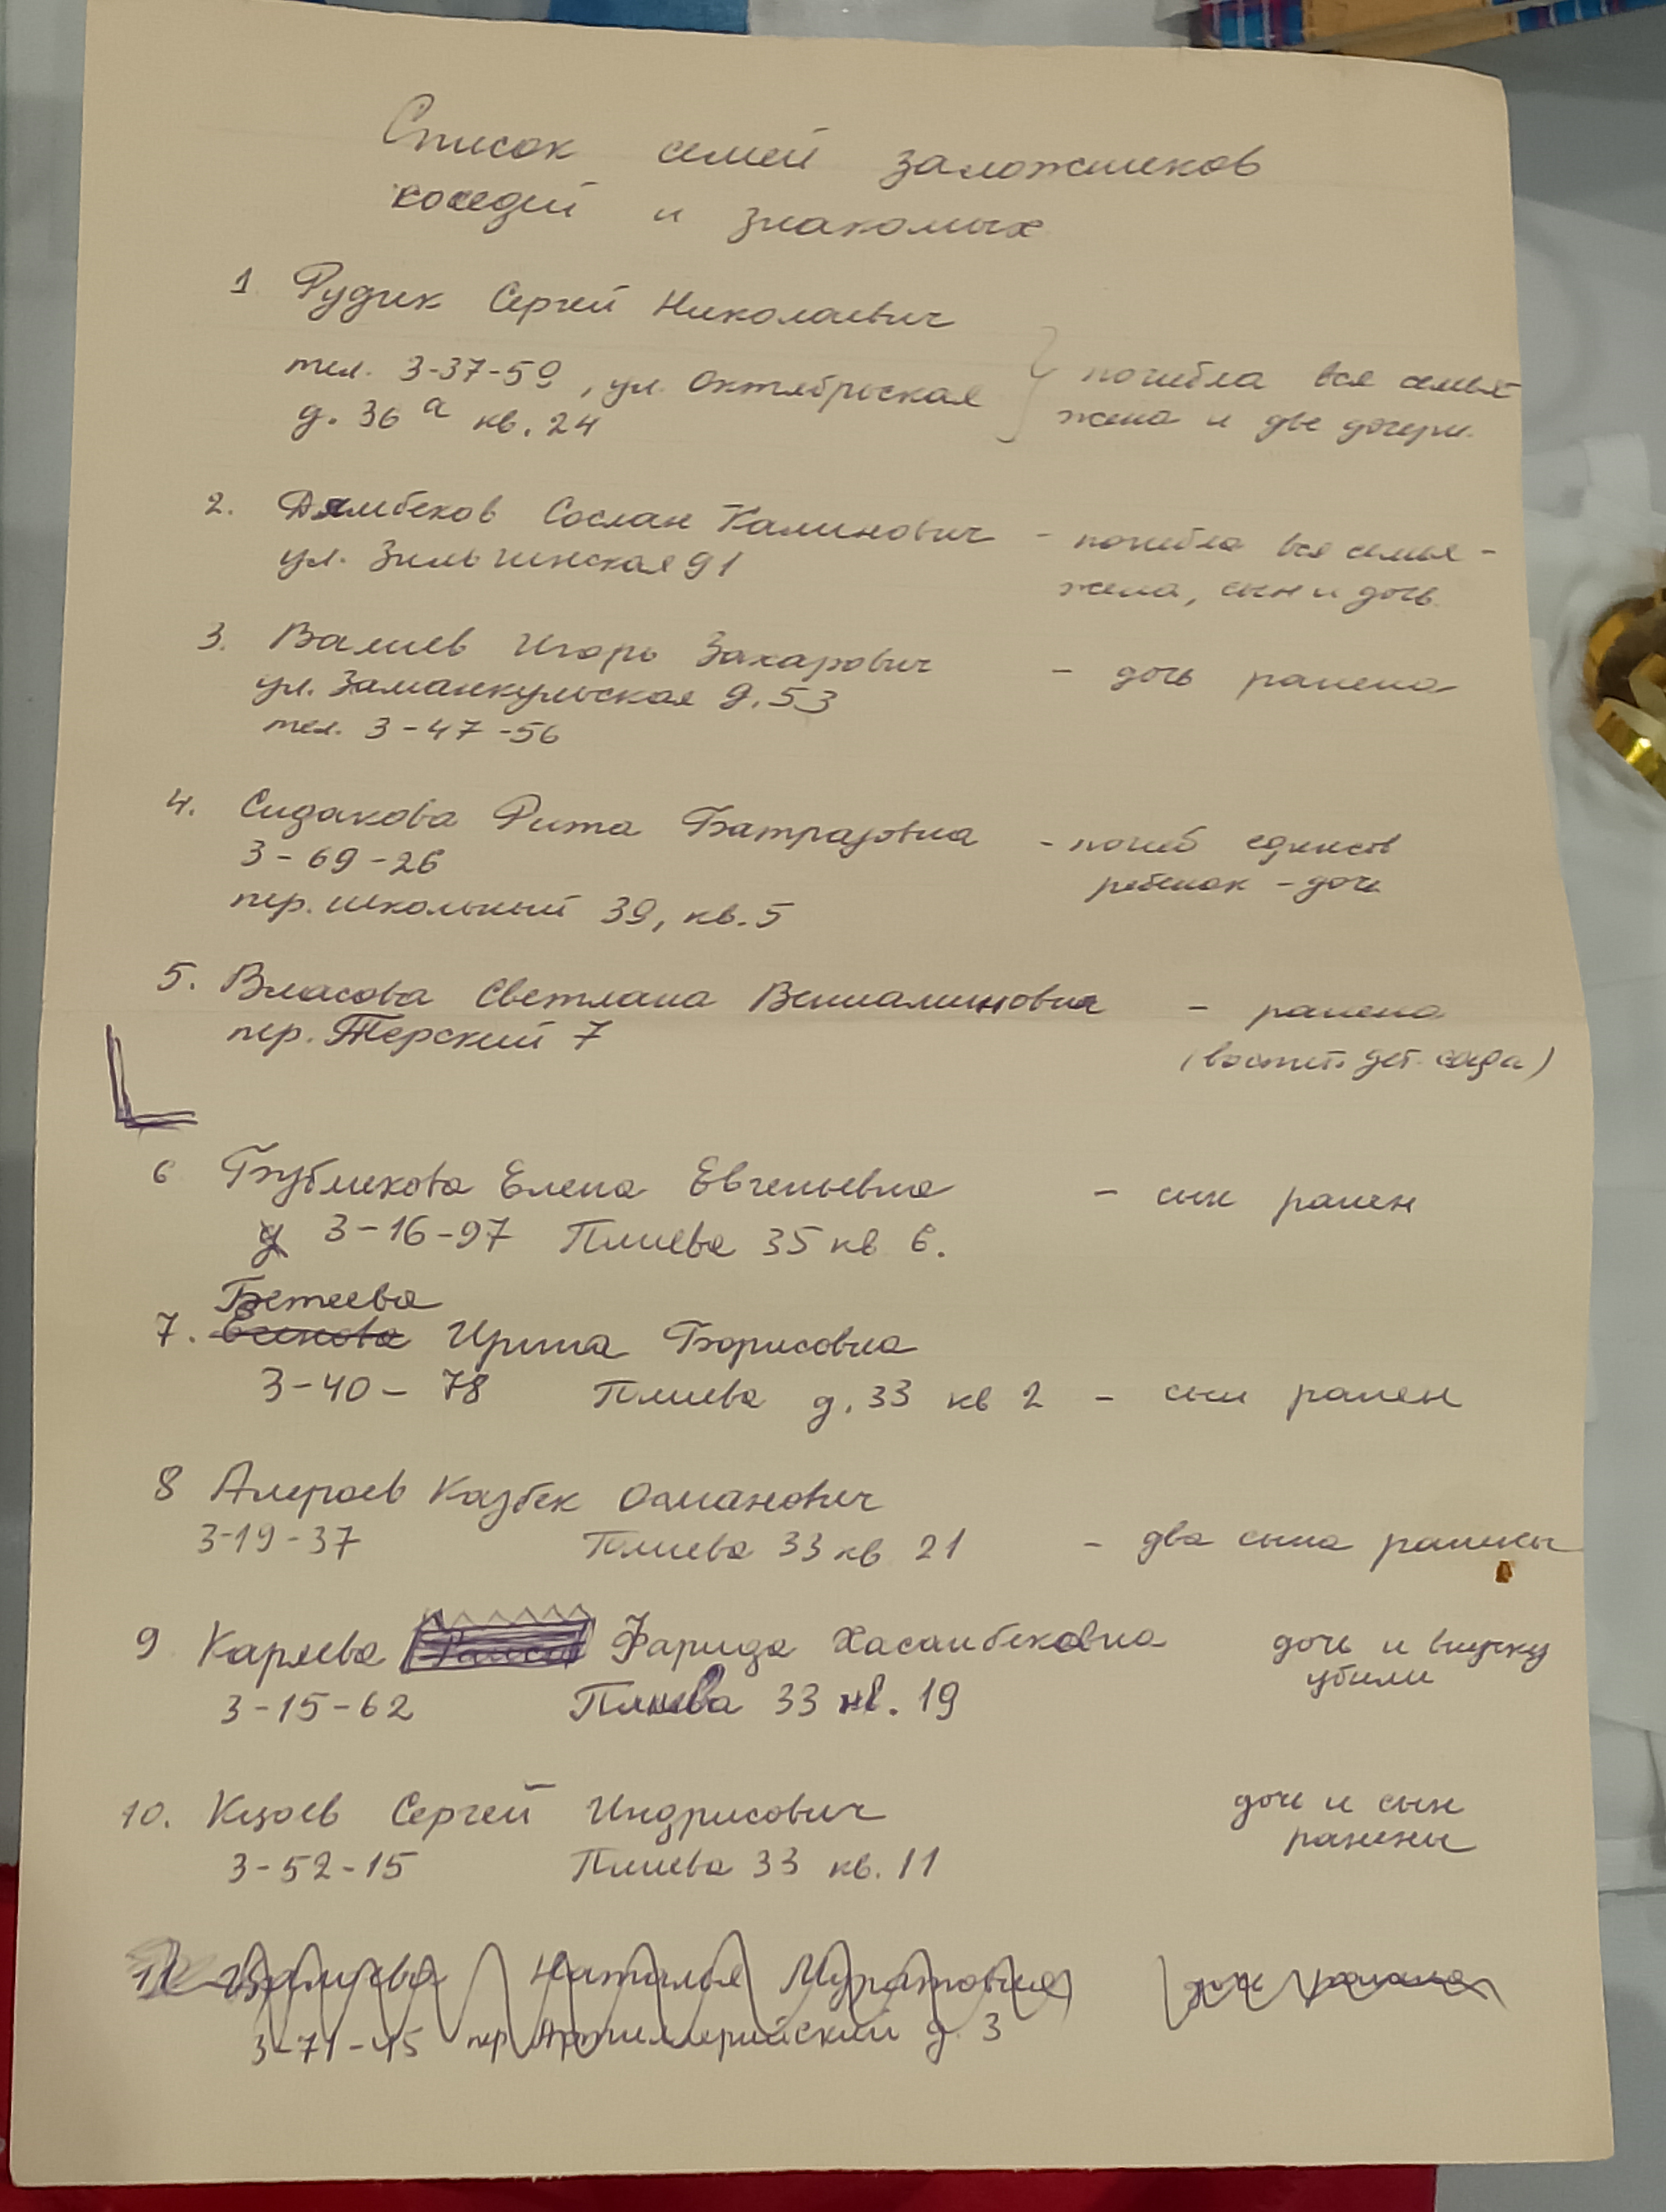 Список семей заложников
соседей и знакомых
1 Рудик Сергей Николаевич
тел. 3-37-59, ул. Октябрьская
д. 36 а кв. 24
погибла вся семья
жена и две дочери.
2. Дзамбеков Сослан Калинович - погибла вся семья -
ул. Зильгинская 91
жена, сын и дочь
3. Валиев Игорь Захарович - дочь ранена
ул. Заманкульская д. 53
тел. 3-47-56
4. Сидакова Рита Батразовна - погиб единств
3-69-26
ребенок - дочь
пер. школьный 39, кв. 5
5. Власова Светлана Вениаминовна - ранена
пер. Терский 7
(воспит. дет. сада)
6 Бубликова Елена Евгеньевна - сын ранен
3-16-97 Плиева 35 кв 6.
Бетеева
7. Ирина Борисовна
3-40-78 Плиева д. 33 кв 2 - сын ранен
8 Алероев Казбек Османович
3-19-37 Плиева 33 кв 21 - два сына ранены
9 Каряева Фарида Хасанбековна дочь и внучку
убили
3-15-62 Плиева 33 кв. 19
10. Кцоев Сергей Индрисович дочь и сын
ранены
3-52-15 Плиева 33 кв. 11
11 Наталья Муратовна дочь ранена
3-71-45 пер Артиллерийский д. 3